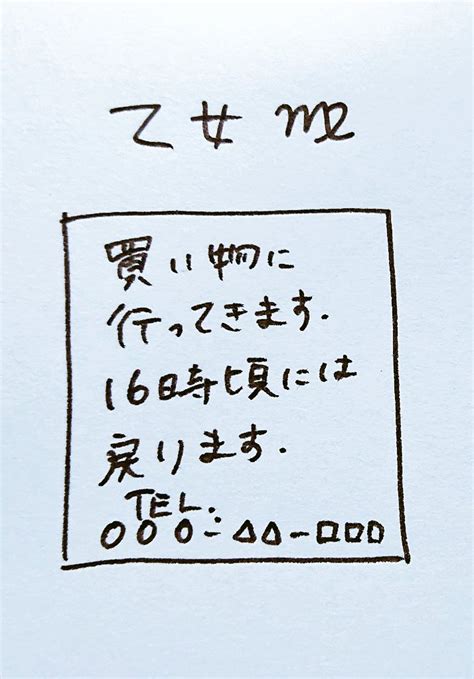 乙女 ♍
買い物に
行ってきます.
16時頃には
戻ります.
TEL.
○○○-△△-□□□